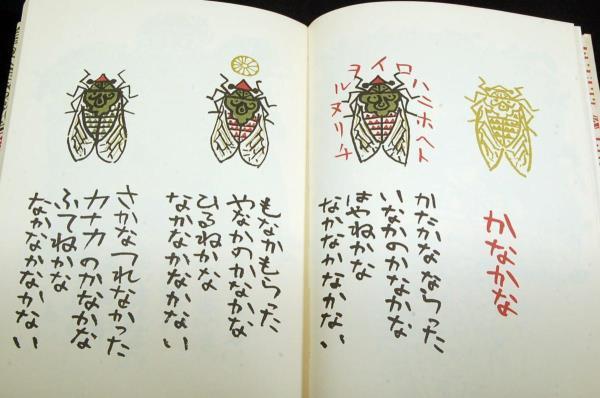 かなかな
イロハニホヘト
チリヌルヲ
かたかなならった
いなかのかなかな
はやねかな
なかなかなかない
もなかもらった
やなかのかなかな
ひるねかな
なかなかなかない
さかなつれなかった
カナカのかなかな
ふてねかな
なかなかなかない